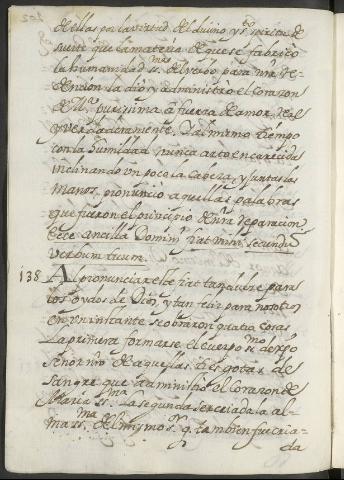 de ellas por la virtud del divino y sto. espiritu de
suerte que la materia de que se fabrico
la humanidad ssma. del verbo para nra. re-
dencion la dio y administro el corazon
de Ma. purissima à fuerza de amor, real
y verdaderamente. Al mismo tiempo
con la humildad nunca arto encarecida
inclinando un poco la cabeza, y juntas las
manos, pronunció aquellas palabras
que fueron el principio de nra reparacion
Ecce ancilla Domini, fiat mihi secundũ
verbum tuum.
138 Al pronunciar este fiat tan dulce para
los oydos de Dios, y tan feliz para nosotros
en un instante se obraron quatro cosas
La primera formarse el cuerpo ssmo. de xpo
señor nro de aquellas tres gotas de
sangre que administró el corazon de
Maria ssma. La segunda ser criada la al-
ma ssma. del mismo sr. q. tambien fue cria-
da